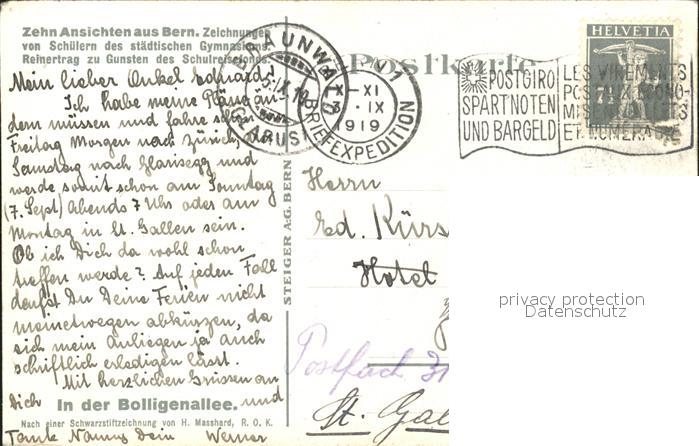 Zehn Ansichten aus Bern. Zeichnungen
von Schülern des städtischen Gymnasiums.
Reinertrag zu Gunsten des Schulreisefonds.
Mein lieber Onkel Eduard!
Ich habe meine Pläne än-
dern müssen und fahre schon
Freitag Morgen nach Zürich,
Samstag nach Glarisegg und
werde somit schon am Sonntag
(7. Sept) Abends 7 Uhr oder am
Montag in St. Gallen sein.
Ob ich Dich da wohl schon
treffen werde? Auf jeden Fall
darfst Du Deine Ferien nicht
meinetwegen abkürzen, da
sich mein Anliegen ja auch
schriftlich erledigen lässt.
Mit herzlichen Grüssen an
Dich und
In der Bolligenallee.
Nach einer Schwarzstiftzeichnung von H. Masshard, R. O. K.
Tante Nanny Dein Werner
STEIGER A:G. BERN
Postkarte
BRAUNWALD
(GLARUS)
VI1
XI
IX
1919
BRIEFEXPEDITION
POSTGIRO
SPART NOTEN
UND BARGELD
LES VIREMENTS
POSTAUX ECONO-
MISENT BILLETS
ET NUMERAIRE
HELVETIA
7½
Herrn
Ed. Kürs
Hotel
Postfach 31
St. Gal
privacy protection
Datenschutz